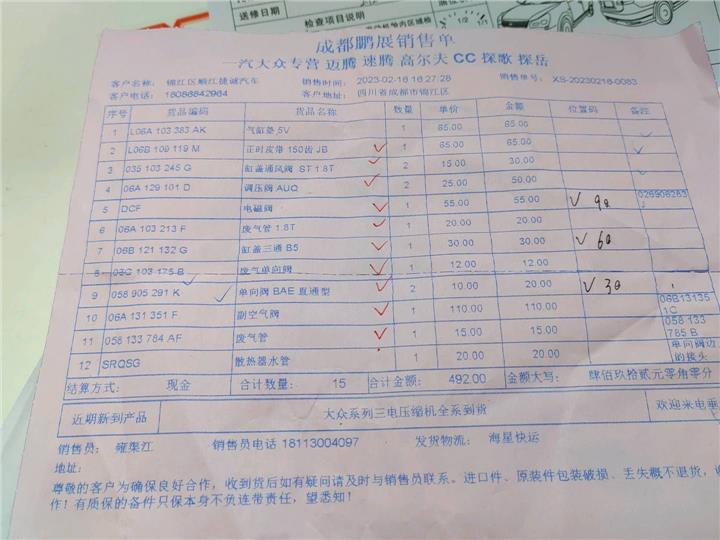 送修日期
检查项目说明
成都鹏展销售单
一汽大众专营 迈腾 速腾 高尔夫 CC 探歌 探岳
客户名称: 锦江区顺江捷诚汽车 销售时间: 2023-02-16 16:27:28 销售单号: XS-20230216-0083
客户电话: 18086842984 客户地址: 四川省成都市锦江区
序号 货品编码 货品名称 数量 单价 金额 位置码 备注
1 L06A 103 383 AK 气缸垫 5V 1 65.00 65.00
2 L06B 109 119 M 正时皮带 150齿 JB 1 65.00 65.00
3 035 103 245 G 缸盖通风阀 ST 1.8T 2 15.00 30.00
4 06A 129 101 D 调压阀 AUQ 2 25.00 50.00
5 DCF 电磁阀 1 55.00 55.00 90 026906283
6 06A 103 213 F 废气管 1.8T 1 20.00 20.00
7 06B 121 132 G 缸盖三通 B5 1 30.00 30.00 60
8 03C 103 175 B 废气单向阀 1 12.00 12.00
9 058 905 291 K 单向阀 BAE 直通型 2 10.00 20.00 30
10 06A 131 351 F 副空气阀 1 110.00 110.00 06B131351C
11 058 133 784 AF 废气管 1 15.00 15.00 058 133 785 B
12 SRQSG 散热器水管 1 20.00 20.00 单向阀边的接头
结算方式: 现金 合计数量: 15 合计金额: 492.00 金额大写: 肆佰玖拾贰元零角零分
近期新到产品 大众系列三电压缩机全系到货 欢迎来电垂
销售员: 雍渠江 销售员电话 18113004097 发货物流: 海星快运
地址:
尊敬的客户为确保良好合作，收到货后如有疑问请及时与销售员联系。进口件、原装件包装破损、丢失概不退货，
作！有质保的备件只保本身不负连带责任，望悉知！